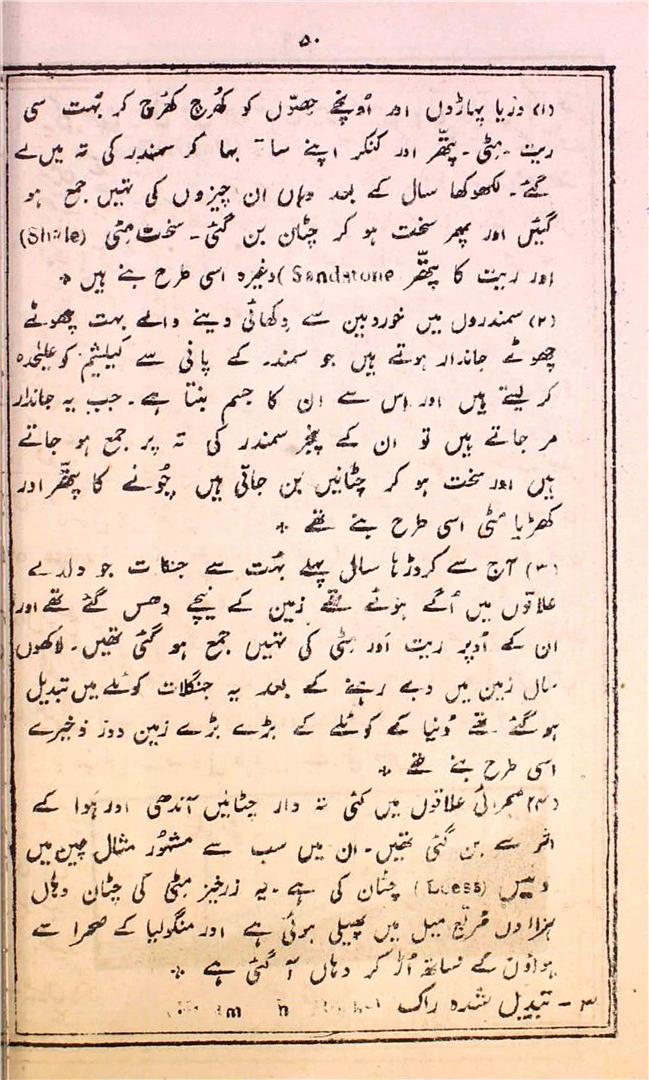 ۵۰
(۱) دریا پہاڑوں اور اُونچے حِصّوں کو کھُرچ کھُرچ کر بُہت سی
ریت - مِٹی - پتھّر اور کنکر اپنے سا بہا کر سمندر کی تہ میں لے
گئے - لکھوکھا سال کے بعد وہاں ان چیزوں کی تہیں جمع ہو
گئیں اور پھر سخت ہو کر چٹان بن گئی - سخت مِٹی (Shale)
اور ریت کا پتھّر Sandstone) وغیرہ اسی طرح بنے ہیں *
(۲) سمندروں میں خوردبین سے دِکھائی دینے والے بہت چھوٹے
چھوٹے جاندار ہوتے ہیں جو سمندر کے پانی سے کیلشیم کو علیٰحدہ
کر لیتے ہیں اور اِس سے ان کا جسم بنتا ہے - جب یہ جاندار
مر جاتے ہیں تو ان کے پنجر سمندر کی تہ پر جمع ہو جاتے
ہیں اور سخت ہو کر چٹانیں بن جاتی ہیں چُونے کا پتھّر اور
کھڑیا مٹی اسی طرح بنے تھے *
(۳) آج سے کروڑہا سال پہلے بُہت سے جنگلات جو دلدلے
علاقوں میں اُگے ہوئے تھے زمین کے نیچے دھس گئے تھے اور
ان کے اُوپر ریت اور مِٹی کی تہیں جمع ہو گئی تھیں - لاکھوں
سال زمین میں دبے رہنے کے بعد یہ جنگلات کوئلے میں تبدیل
ہو گئے تھے دُنیا کے کوئلے کے بڑے بڑے زمین دوز ذخیرے
اسی طرح بنے تھے *
(۴) صحرائی علاقوں میں کئی تہ دار چٹانیں آندھی اور ہوا کے
اثر سے بن گئی تھیں - ان میں سب سے مشہُور مثال چین میں
(Loess) چٹان کی ہے - یہ زرخیز مِٹی کی چٹان وہاں
ہزاروں مُربّع میل میں پھیلی ہوئی ہے اور منگولیا کے صحرا سے
ہواؤں کے ساتھ اُڑ کر وہاں آ گئی ہے *
۳ - تبدیل شدہ راک